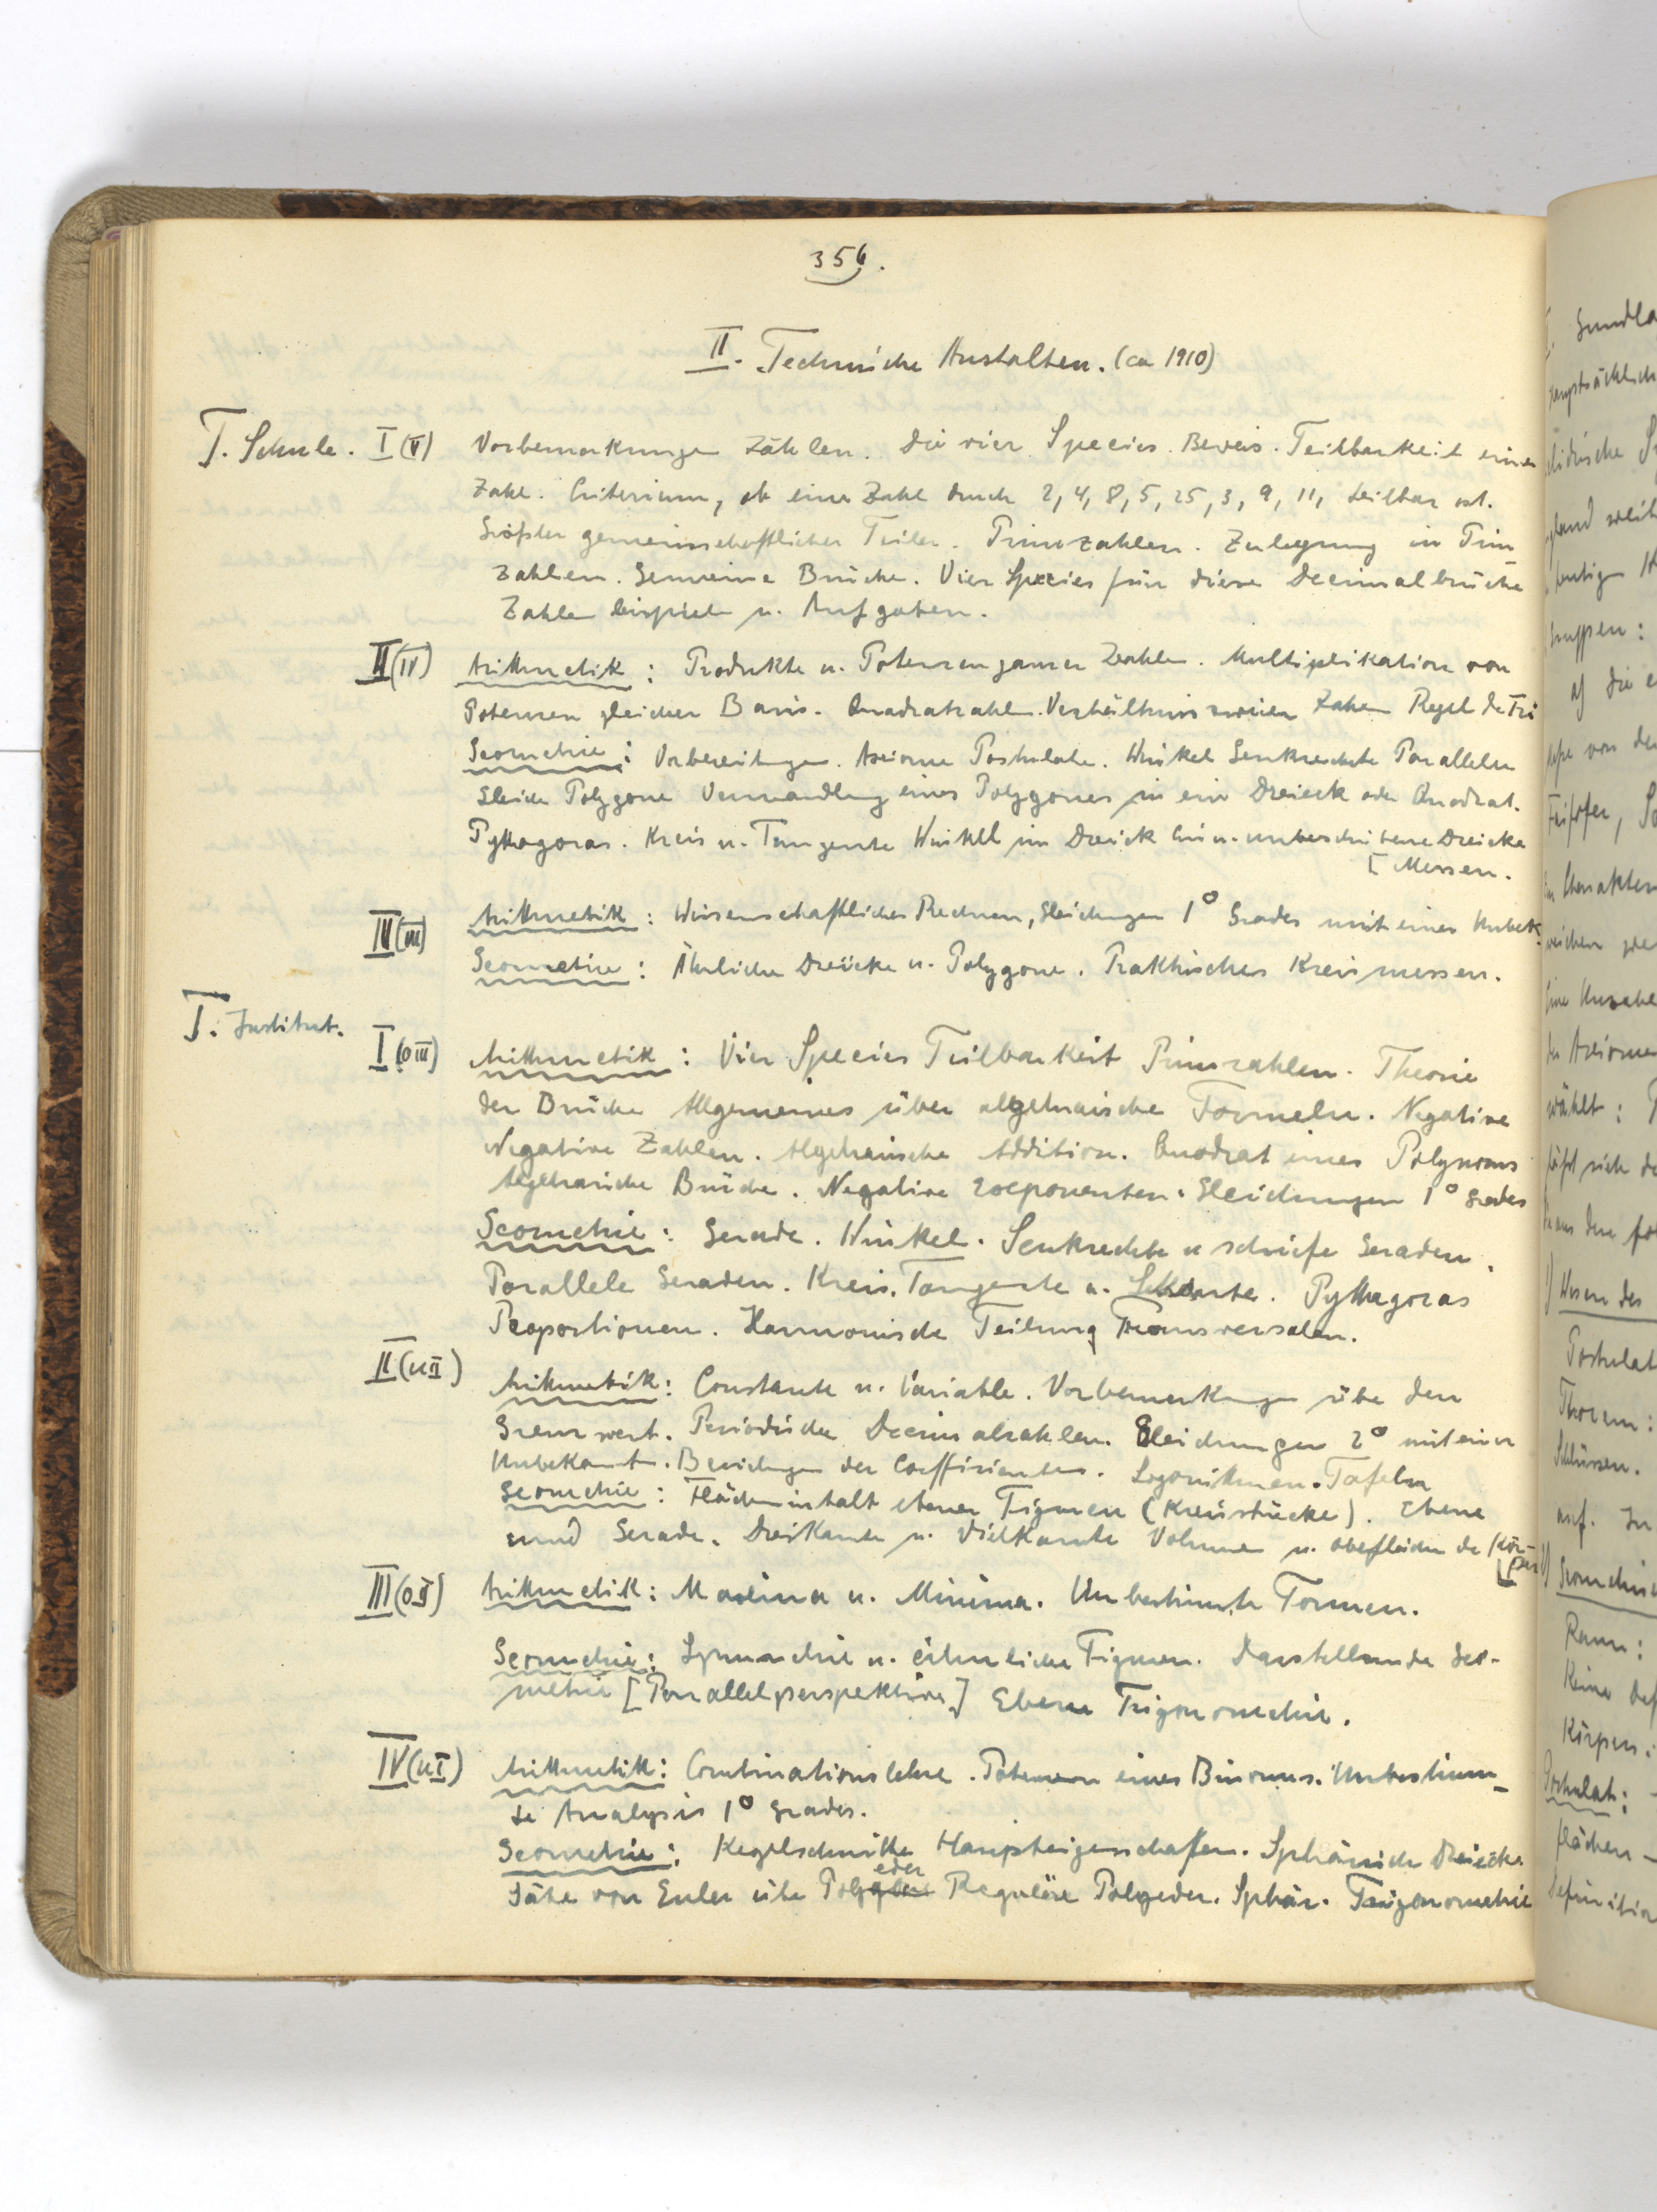 356.
II. Technische Anstalten. (ca 1910)
T. Schule. I (V) Vorbemerkungen Zahlen. Die vier Species. Beweis. Teilbarkeit einer
Zahl. Criterium, ob eine Zahl durch 2, 4, 8, 5, 25, 3, 9, 11, teilbar ist.
Größter gemeinschaftlicher Teiler. Primzahlen. Zerlegung in Prim-
zahlen. Gemeine Brüche. Vier Species für diese Decimalbrüche
Zahlenbeispiele u. Aufgaben.
II (IV) Arithmetik: Produkte u. Potenzen ganzer Zahlen. Multiplikation von
Potenzen gleicher Basis. Quadratzahlen. Verhältniss zweier Zahlen Regel de Tri
Geometrie: Vorbereitungen. Axiome Postulate. Winkel Senkrechte Parallelen
Gleiche Polygone Verwandlung eines Polygones in ein Dreieck oder Quadrat.
Pythagoras. Kreis u. Tangente Winkel im Dreieck Ein u. umbeschriebene Dreiecke
[Messen.
III (III) Arithmetik: Wissenschaftliches Rechnen, Gleichungen 1° Grades mit einer Unbek.
Geometrie: Ähnliche Dreiecke u. Polygone. Praktisches Kreismessen.
T. Institut.
I (O III) Arithmetik: Vier Species Teilbarkeit Primzahlen. Theorie
der Brüche Allgemeines über algebraische Formeln. Negative
Negative Zahlen. Algebraische Addition. Quadrat eines Polynoms
Algebraische Brüche. Negative Exponenten. Gleichungen 1° Grades
Geometrie: Gerade. Winkel. Senkrechte u schiefe Geraden.
Parallele Geraden. Kreis. Tangente u. Sekante. Pythagoras
Proportionen. Harmonische Teilung Transversalen.
II (U II) Arithmetik: Constante u. Variable. Vorbemerkungen über den
Grenzwert. Periodische Decimalzahlen. Gleichungen 2° mit einer
Unbekannt. Beziehungen der Coeffizienten. Logarithmen. Tafeln
Geometrie: Flächeninhalt ebener Figuren (Kreisstücke). Ebene
und Gerade. Dreikante u. Vielkante Volumen u. Oberflächen der Kör-
[per
III (O II) Arithmetik: Maxima u. Minima. Unbestimmte Formen.
Geometrie: Symmetrie u. ähnliche Figuren. Darstellende Geo-
metrie [Parallelperspektive] Ebene Trigonometrie.
IV (U I) Arithmetik: Combinationslehre. Potenzen eines Binoms. Unbestimm-
te Analysis 1° Grades.
Geometrie: Kegelschnitte Haupteigenschaften. Sphärische Dreiecke
Sätze von Euler über Polyeder Reguläre Polyeder. Sphär. Trigonometrie